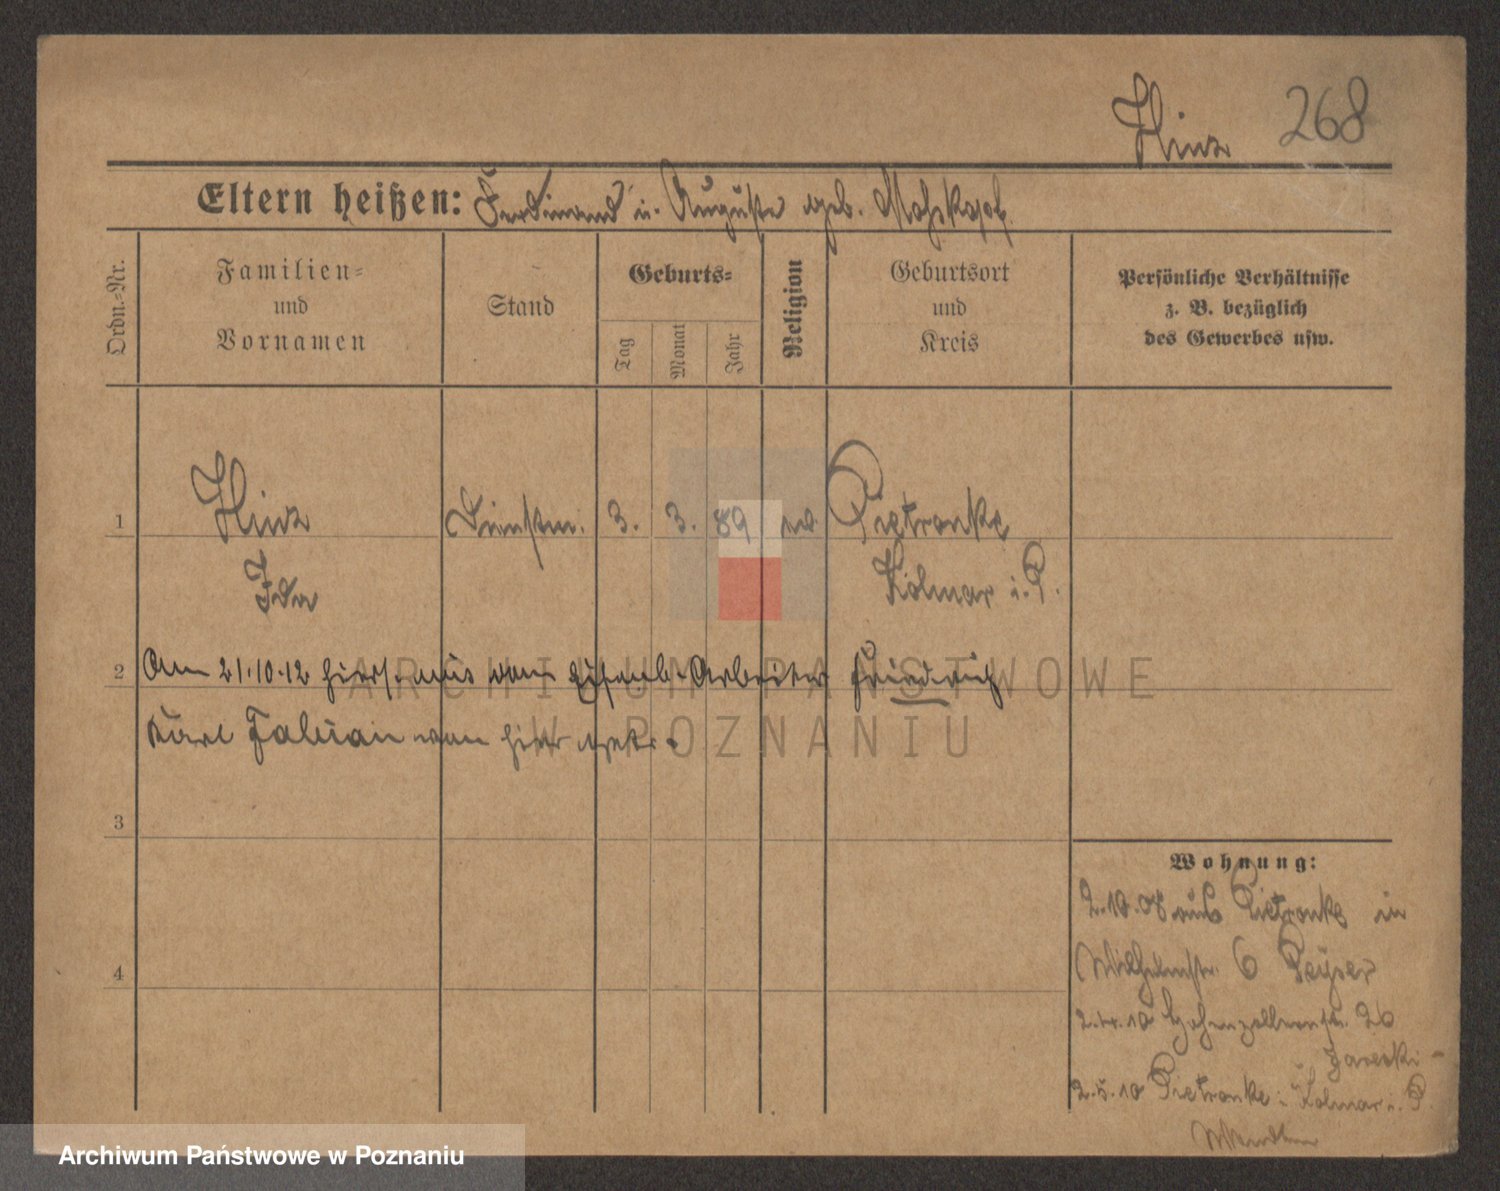 Hinz 268
Eltern heißen: Ferdinand u. Auguste geb.
Ordn.-Nr.
Familien-
und
Vornamen
Stand
Geburts-
Tag
Monat
Jahr
Religion
Geburtsort
und
Kreis
Persönliche Verhältnisse
z. B. bezüglich
des Gewerbes usw.
1 Hinz Dienstm. 3. 3. 89 ev. Pietronke
Ida Kolmar i. P.
2 Am 21.10.12 hiers. mit dem Eisenb.-Arbeiter Friedrich
Karl Fabian von hier
3
4
Wohnung:
2.10.08 aus Pietronke in
Wilhelmstr. 6 Peyser
2.4.10 Hohenzollernstr. 26
2.5.10 Pietronke i. Kolmar i. P.
ARCHIWUM PAŃSTWOWE
W POZNANIU
Archiwum Państwowe w Poznaniu